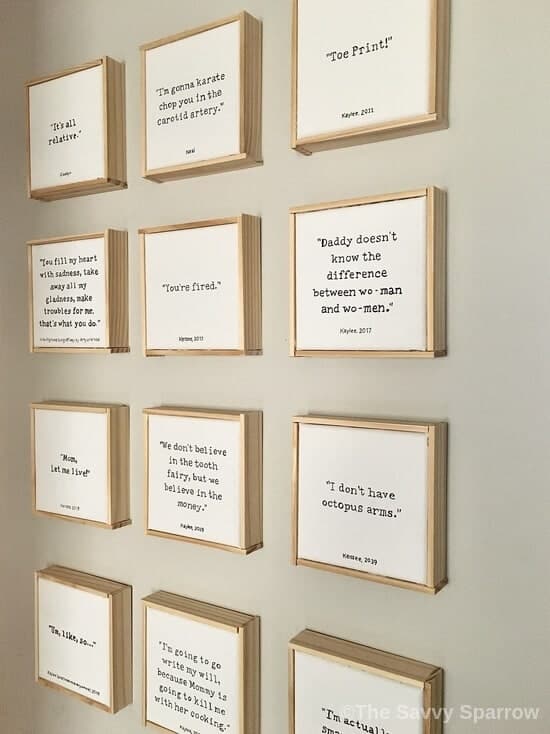 "It's all
relative."
"I'm gonna karate
chop you in the
carotid artery."
Neal
"Toe Print!"
Kaylee, 2011
"You fill my heart
with sadness, take
away all my
gladness, make
troubles for me,
that's what you do."
"You're fired."
Kensee, 2017
"Daddy doesn't
know the
difference
between wo-man
and wo-men."
Kaylee, 2017
"Mom,
let me live!"
"We don't believe
in the tooth
fairy, but we
believe in the
money."
Kaylee, 2018
"I don't have
octopus arms."
Kensee, 2019
"Um, like, so..."
"I'm going to go
write my will,
because Mommy is
going to kill me
with her cooking."
"I'm actually
©The Savvy Sparrow